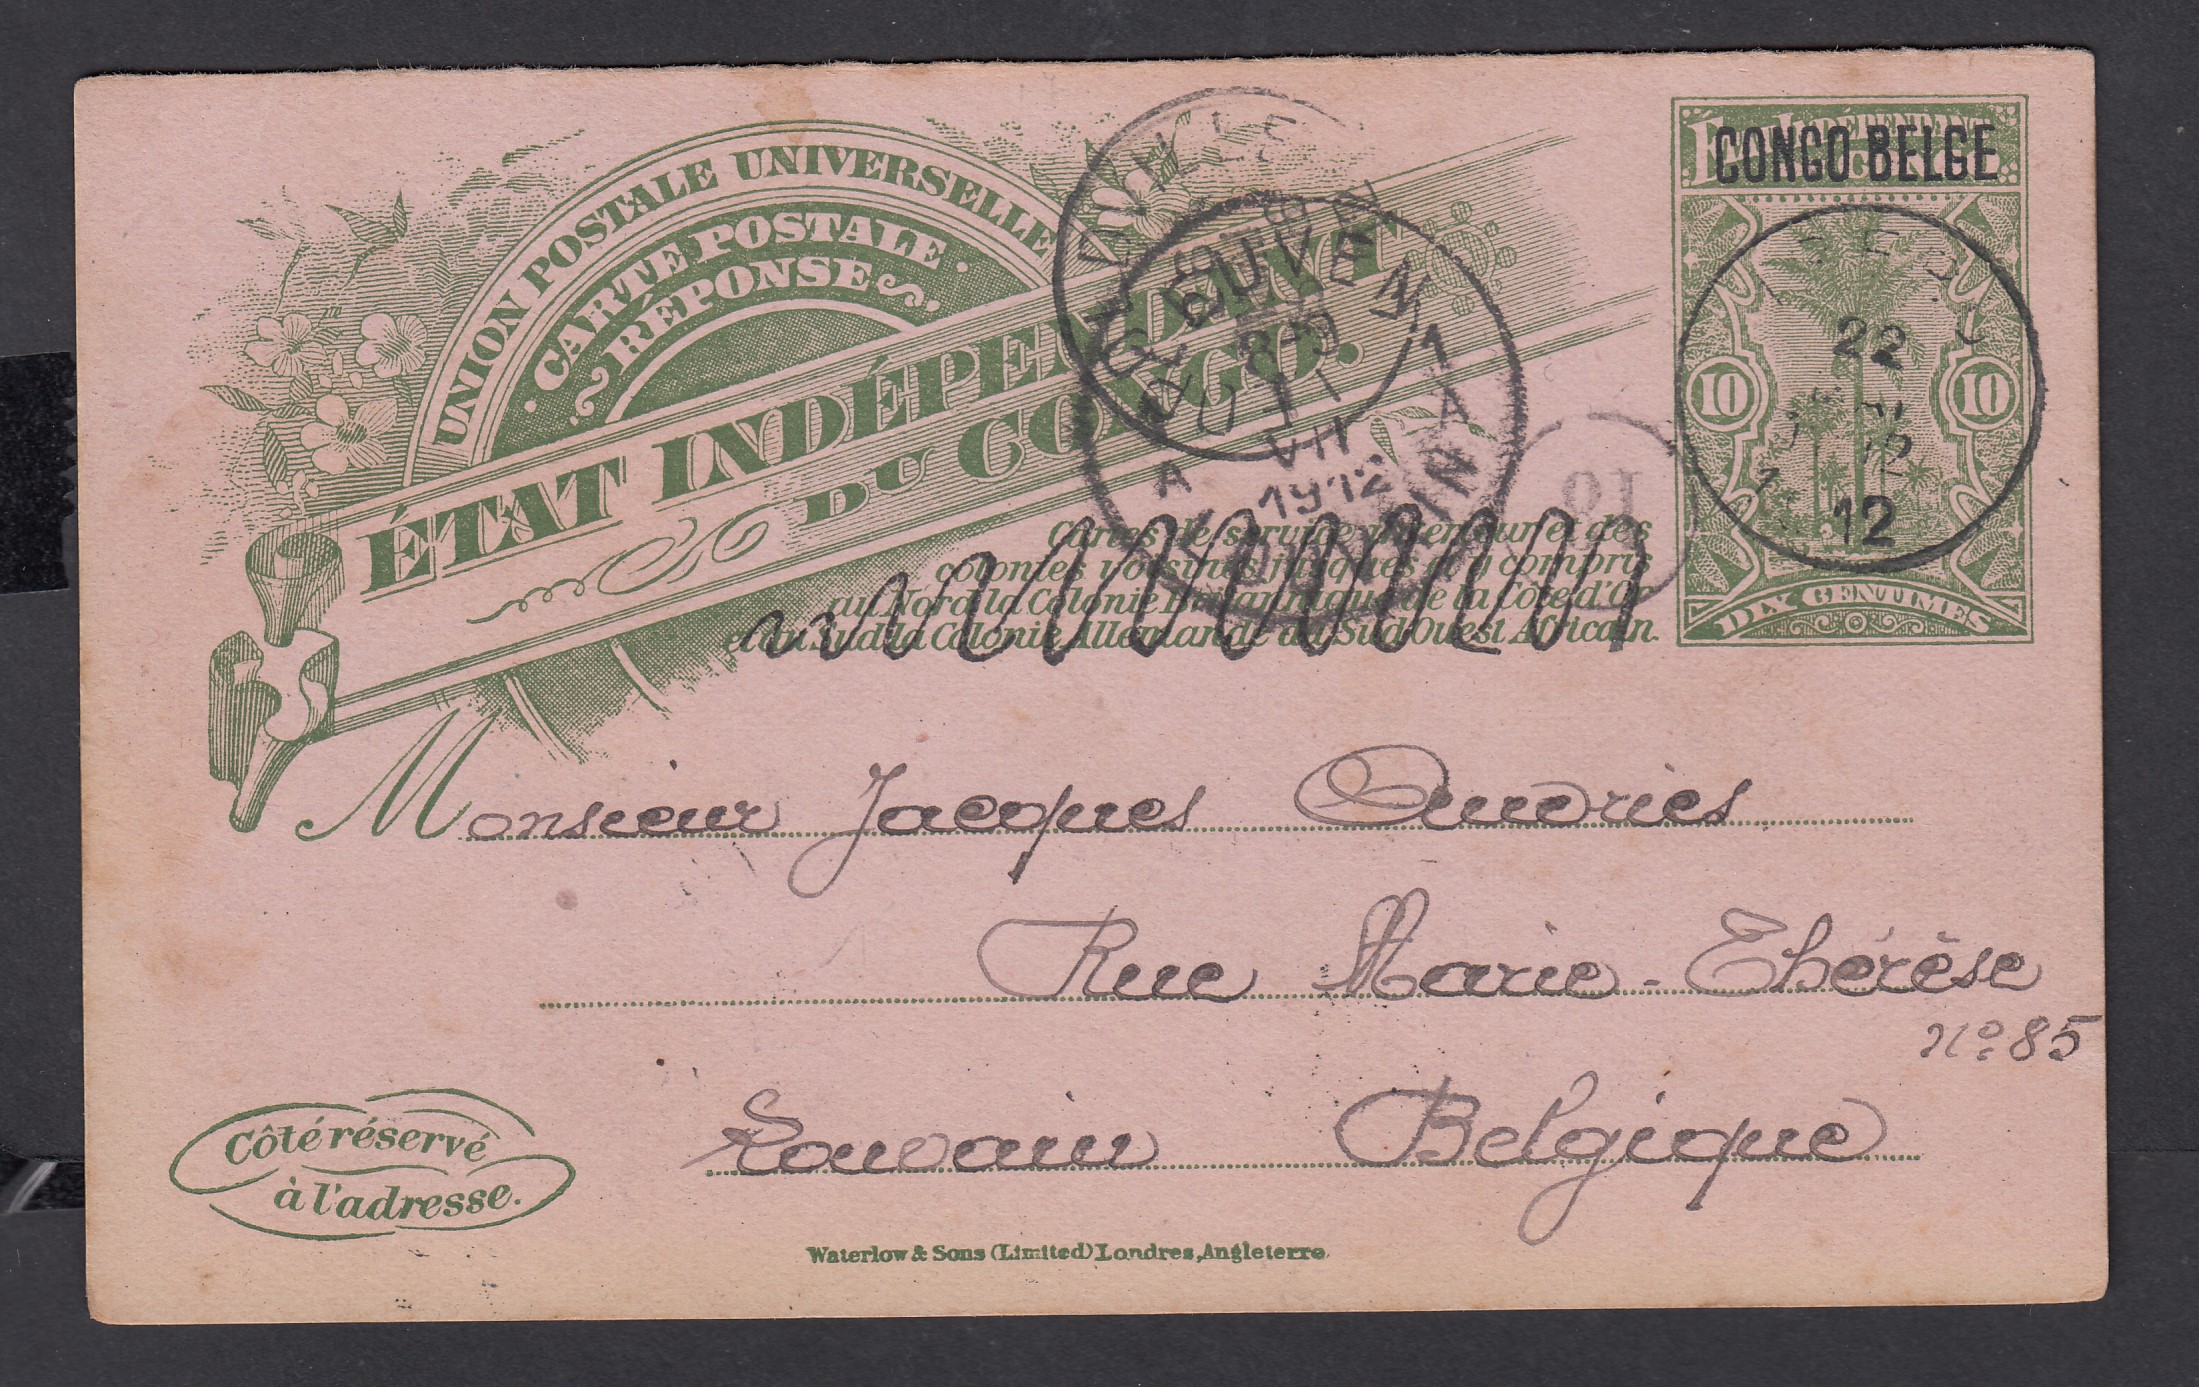 UNION POSTALE UNIVERSELLE
CARTE POSTALE
RÉPONSE
ÉTAT INDÉPENDANT
DU CONGO.
Cartes de service intérieur et des
colonies voisines jusques et y compris
au Nord la Colonie Britannique de la Côte d'Or
et au Sud la Colonie Allemande du Sud Ouest Africain.
CONGO BELGE
10 10
DIX CENTIMES
22
12
LEUVEN 1A
8-9
1
VII
1912
A
LOUVAIN
10
Monsieur Jacques Andries
Rue Marie-Thérèse
No 85
Louvain Belgique
Côté réservé
à l'adresse.
Waterlow & Sons (Limited) Londres, Angleterre.